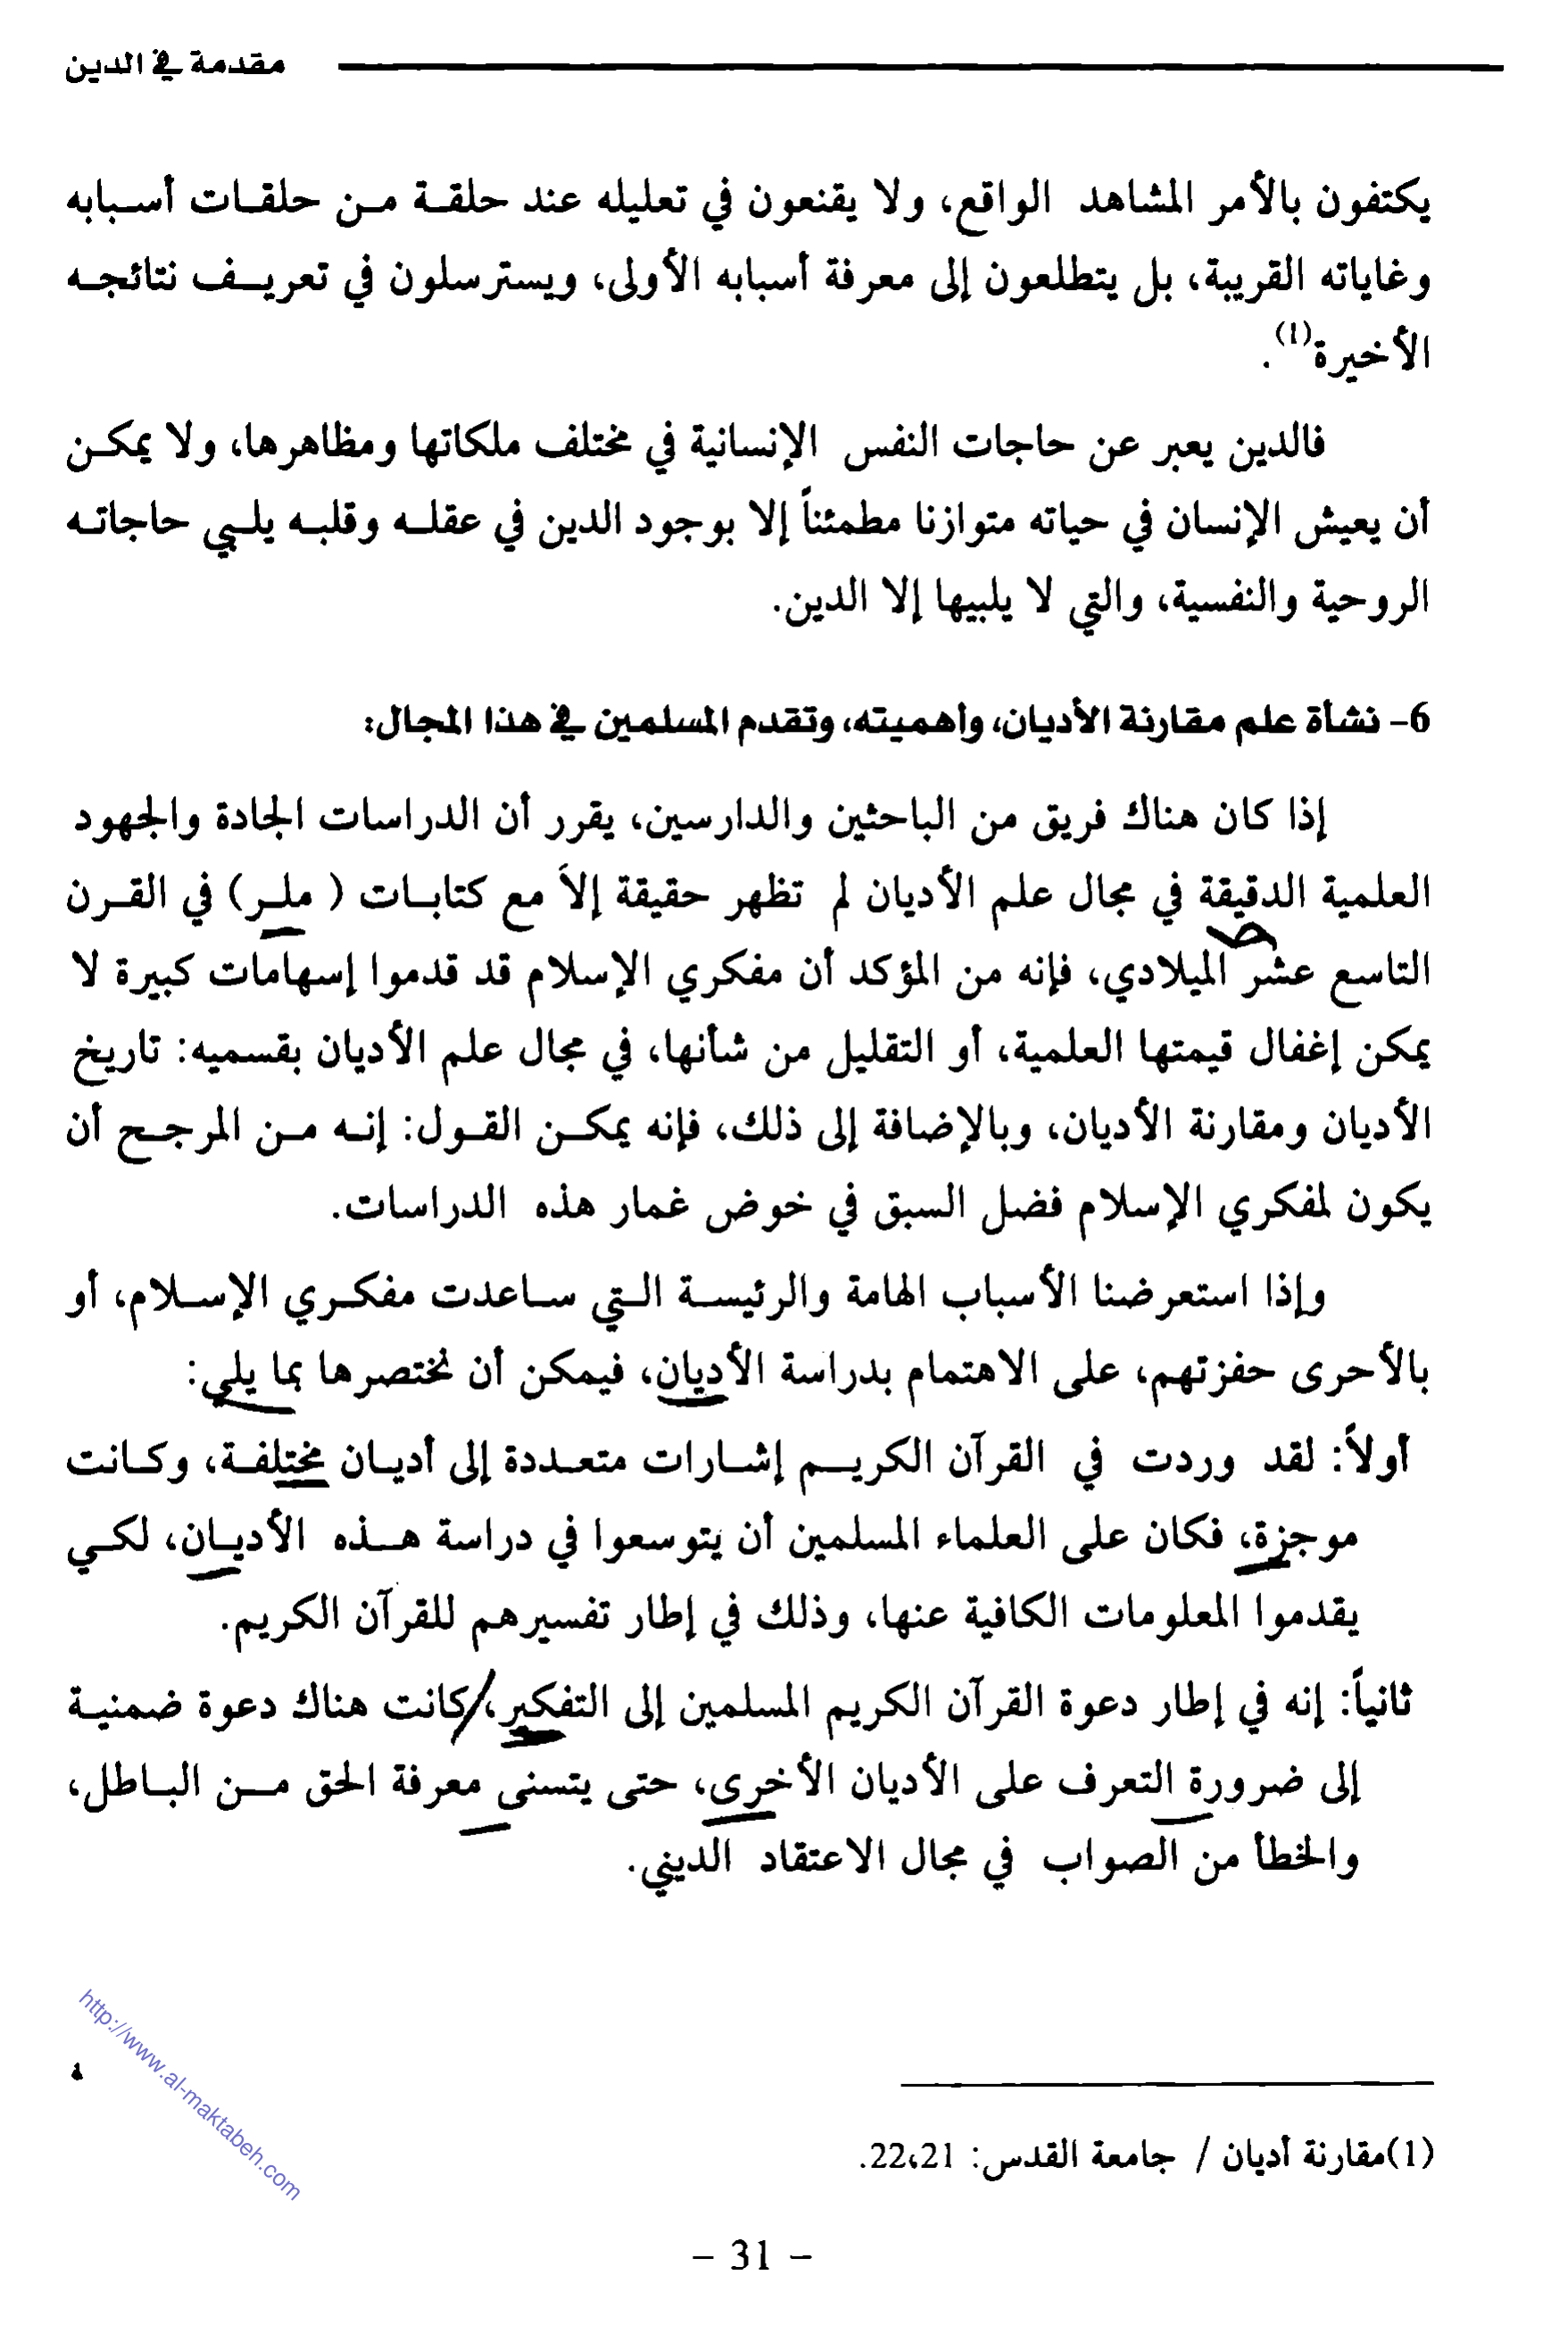 مقدمة في الدين
يكتفون بالأمر المشاهد الواقع، ولا يقنعون في تعليله عند حلقة من حلقات أسبابه
وغاياته القريبة، بل يتطلعون إلى معرفة أسبابه الأولى، ويسترسلون في تعريف نتائجه
الأخيرة(1).
فالدين يعبر عن حاجات النفس الإنسانية في مختلف ملكاتها ومظاهرها، ولا يمكن
أن يعيش الإنسان في حياته متوازنا مطمئناً إلا بوجود الدين في عقله وقلبه يلبي حاجاته
الروحية والنفسية، والتي لا يلبيها إلا الدين.
6- نشأة علم مقارنة الأديان، وأهميته، وتقدم المسلمين في هذا المجال:
إذا كان هناك فريق من الباحثين والدارسين، يقرر أن الدراسات الجادة والجهود
العلمية الدقيقة في مجال علم الأديان لم تظهر حقيقة إلاّ مع كتابات ( ملر) في القرن
التاسع عشر الميلادي، فإنه من المؤكد أن مفكري الإسلام قد قدموا إسهامات كبيرة لا
يمكن إغفال قيمتها العلمية، أو التقليل من شأنها، في مجال علم الأديان بقسميه: تاريخ
الأديان ومقارنة الأديان، وبالإضافة إلى ذلك، فإنه يمكن القول: إنه من المرجح أن
يكون لمفكري الإسلام فضل السبق في خوض غمار هذه الدراسات.
وإذا استعرضنا الأسباب الهامة والرئيسة التي ساعدت مفكري الإسلام، أو
بالأحرى حفزتهم، على الاهتمام بدراسة الأديان، فيمكن أن نختصرها بما يلي:
أولاً: لقد وردت في القرآن الكريم إشارات متعددة إلى أديان مختلفة، وكانت
موجزة، فكان على العلماء المسلمين أن يتوسعوا في دراسة هذه الأديان، لكي
يقدموا المعلومات الكافية عنها، وذلك في إطار تفسيرهم للقرآن الكريم.
ثانياً: إنه في إطار دعوة القرآن الكريم المسلمين إلى التفكير، كانت هناك دعوة ضمنية
إلى ضرورة التعرف على الأديان الأخرى، حتى يتسنى معرفة الحق من الباطل،
والخطأ من الصواب في مجال الاعتقاد الديني.
http://www.al-maktabeh.com
(1)مقارنة أديان / جامعة القدس: 22،21.
- 31 -